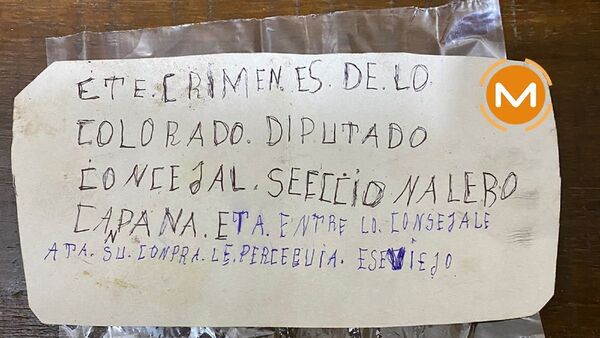 ETE. CRIMEN. ES. DE. LO
COLORADO. DIPUTADO
CONCEJAL. SEECCIONALERO
CAPANA. ETA. ENTRE LO. CONSEJALE
ATA. SU. COMPRA. LE. PERCEGUIA. ESE VIEJO
M